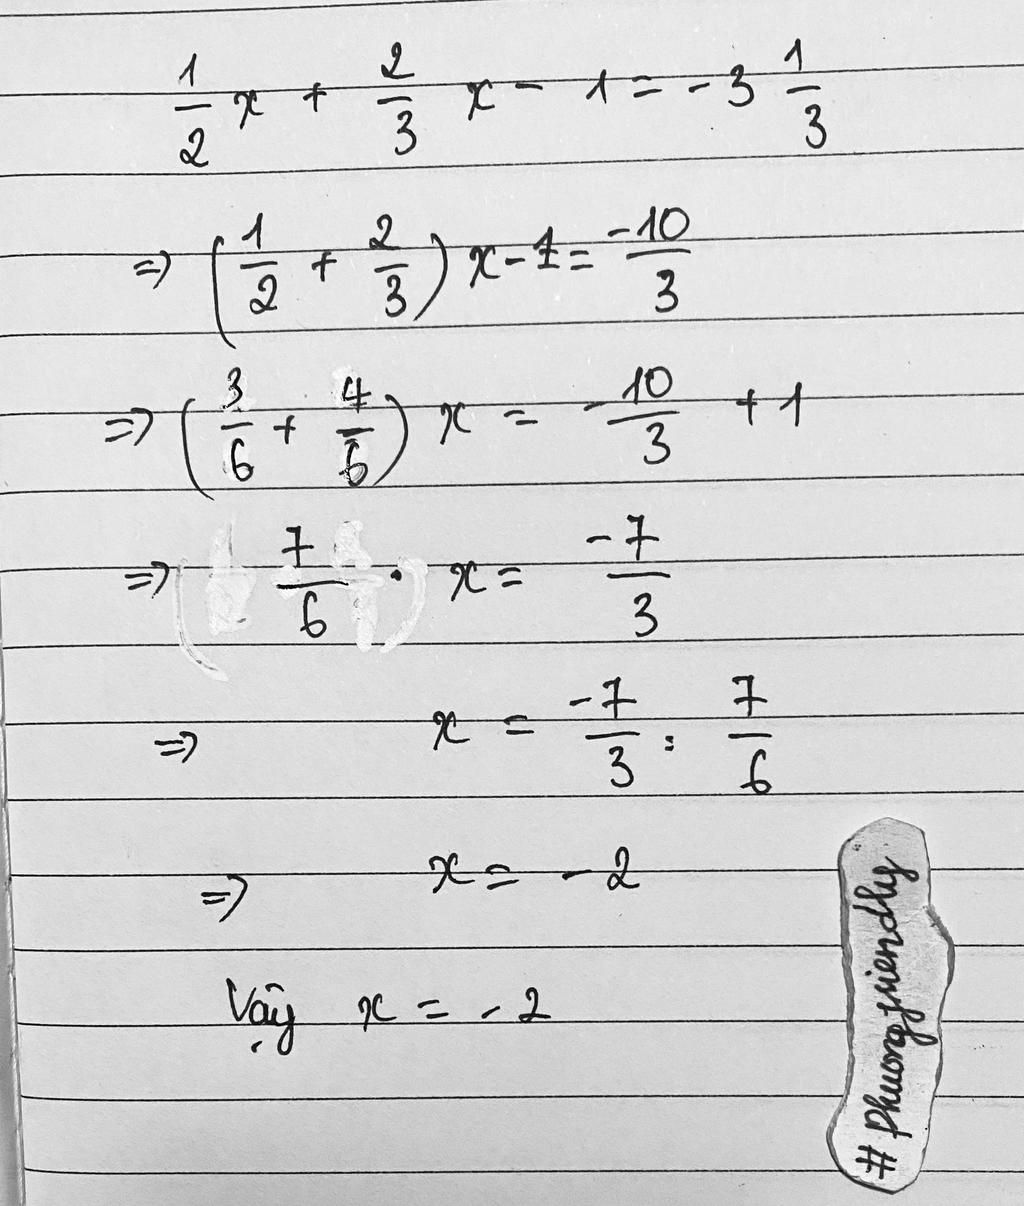 1/2 x + 2/3 x - 1 = -3 1/3
=> (1/2 + 2/3) x - 1 = -10/3
=> (3/6 + 4/6) x = -10/3 + 1
=> 7/6 . x = -7/3
=> x = -7/3 : 7/6
=> x = -2
Vậy x = -2
# Phuongfriendly